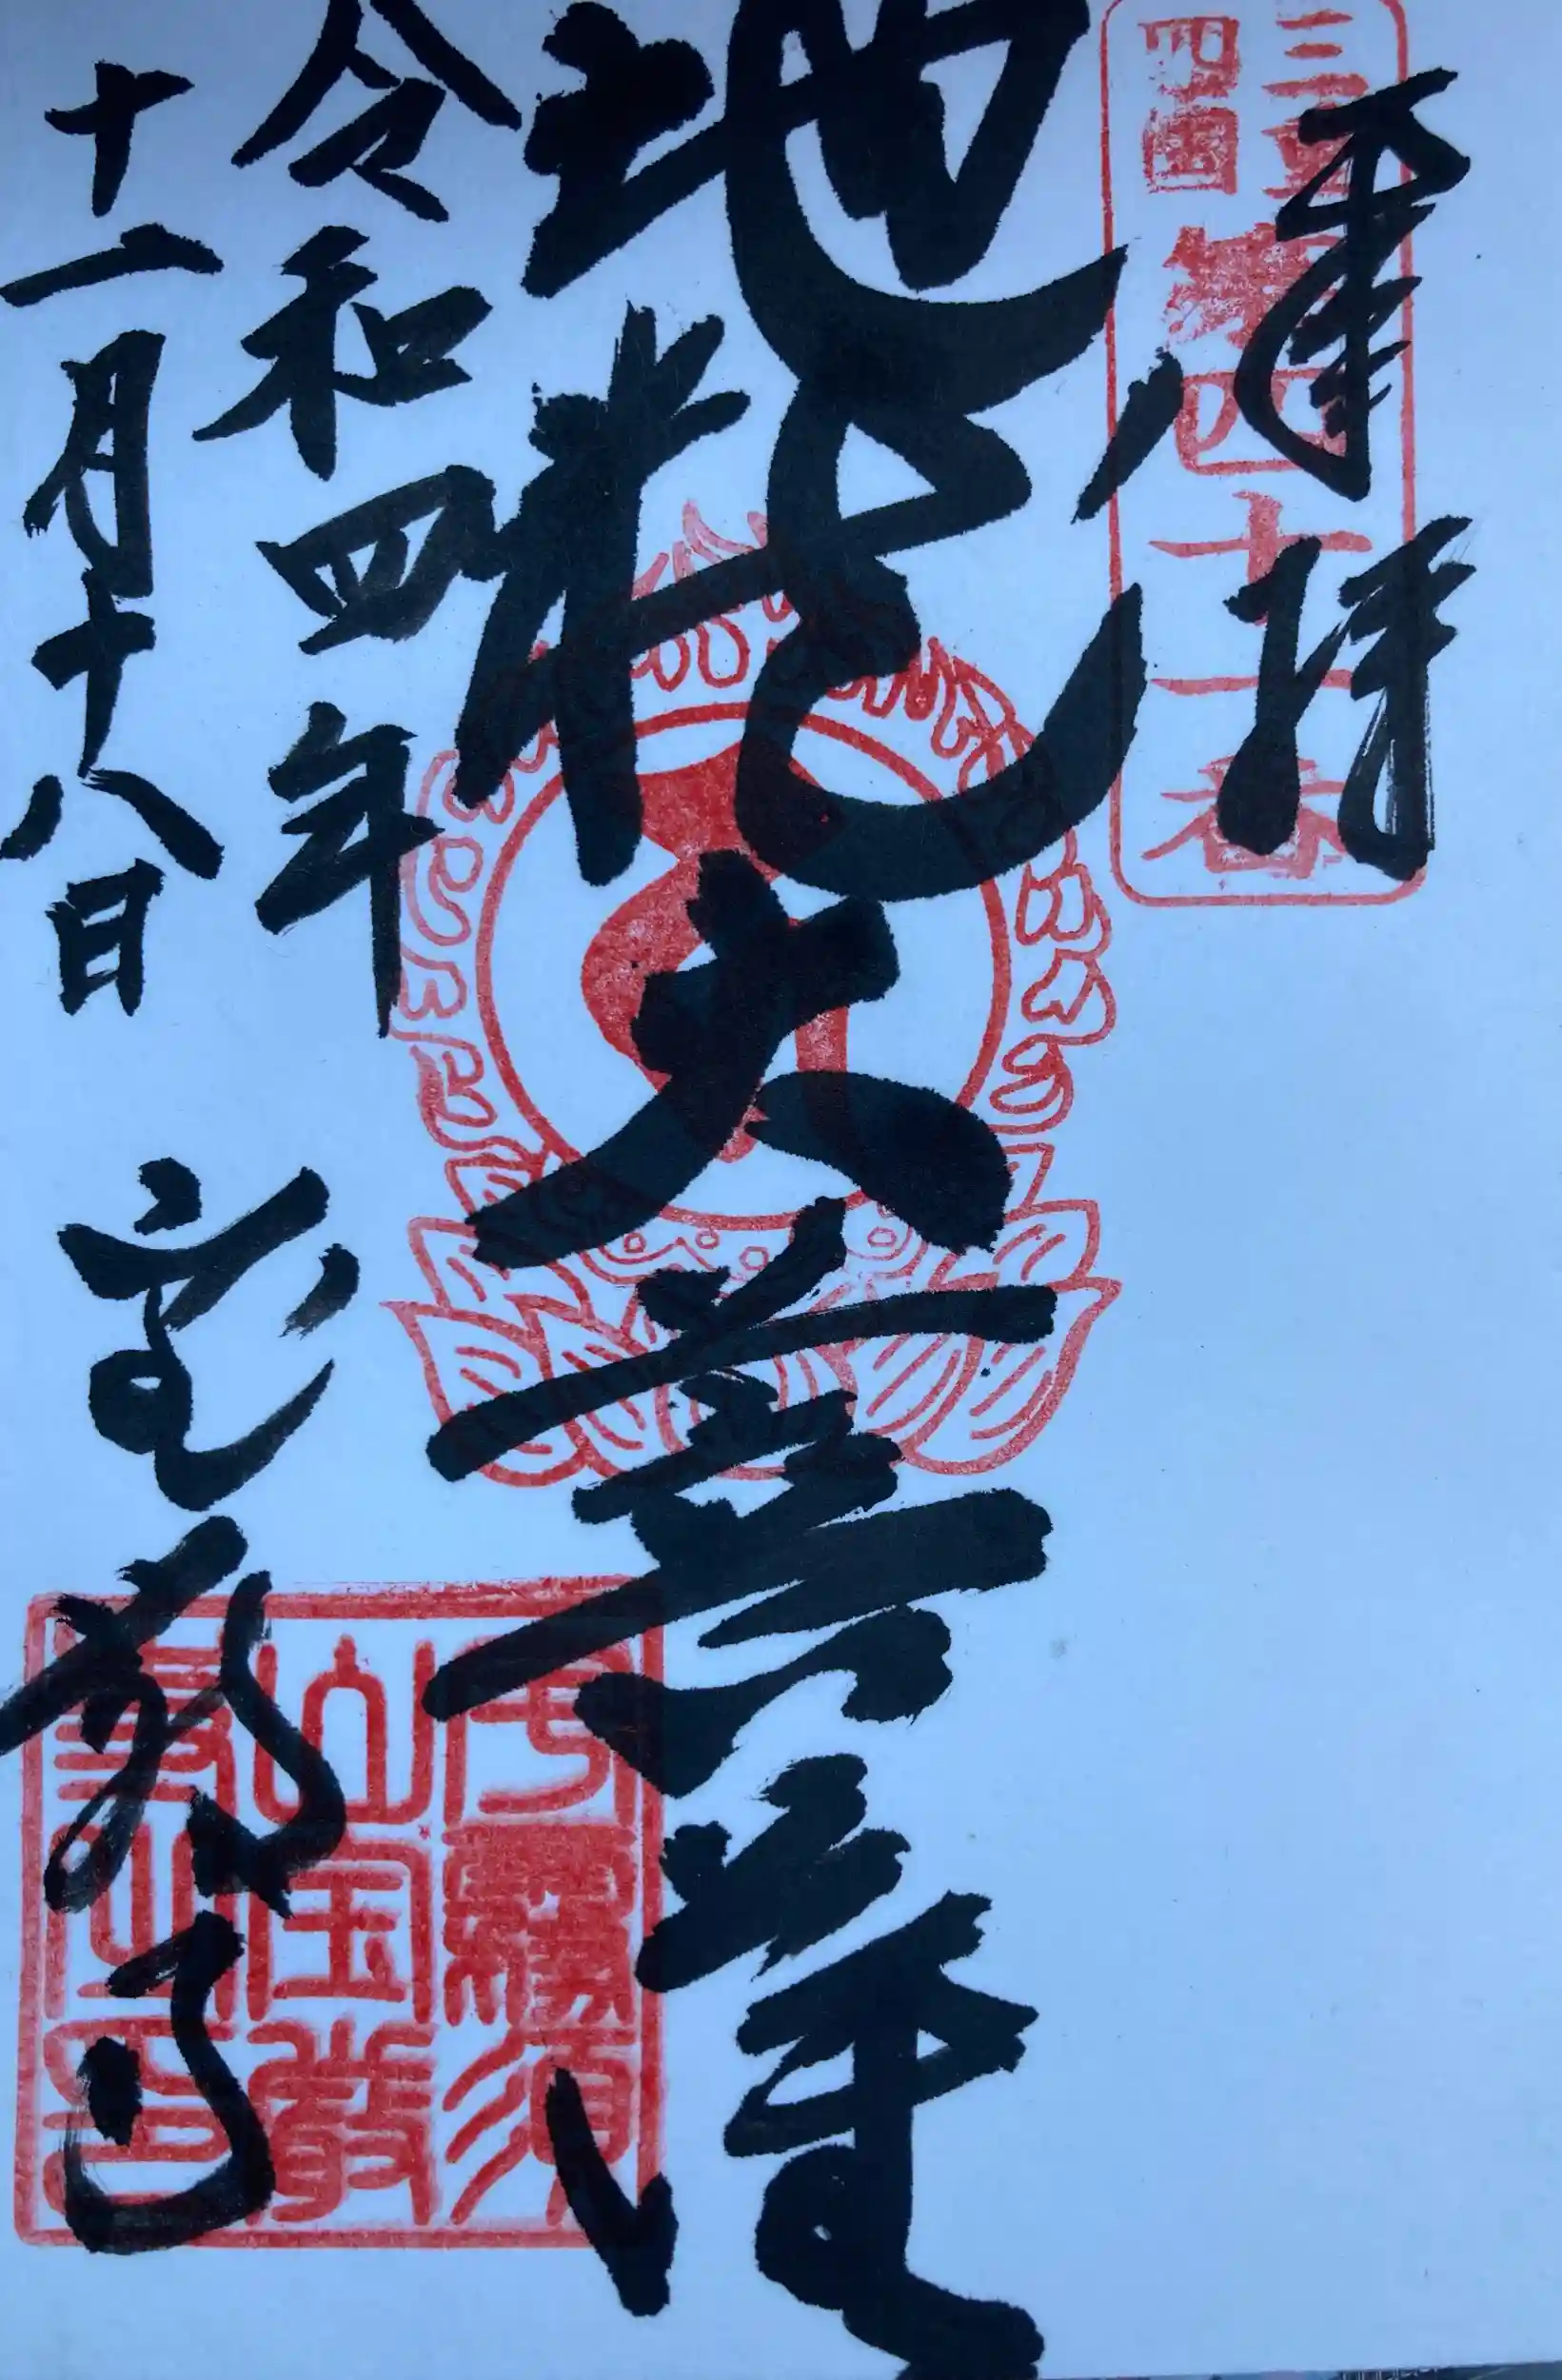 奉拝
三重
四国
第四十一番
地蔵大菩薩
令和四年
十一月十八日
宝厳寺